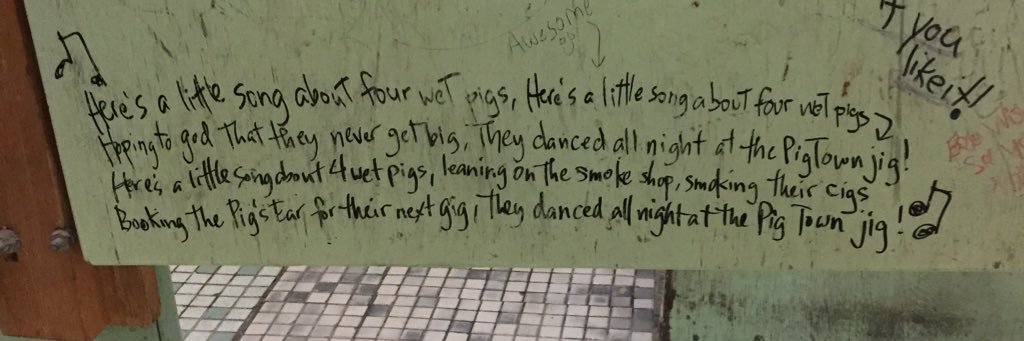 Awesome
if you
like it!!
Here's a little song about four wet pigs, Here's a little song about four wet pigs
Hoping to god That they never get big, They danced all night at the Pig Town jig!
Here's a little song about 4 wet pigs, leaning on the smoke shop, smoking their cigs
Booking the Pig's Ear for their next gig, They danced all night at the Pig Town jig!